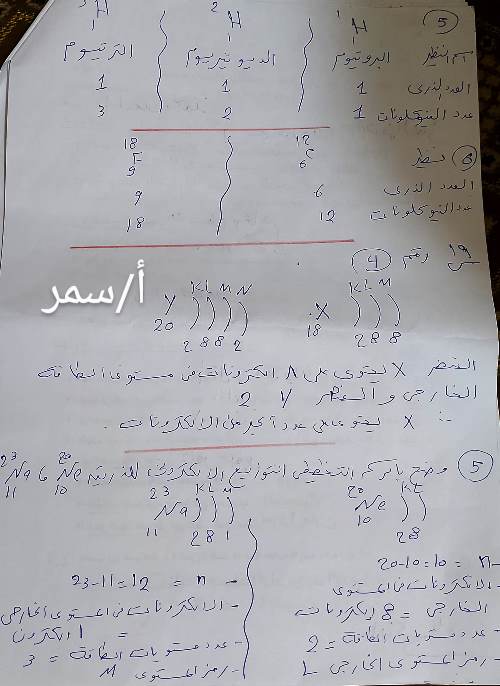 ⑤ ¹H ²H ³H
1 1 1
اسم النظير البروتيوم الديوتيريوم الترتيوم
العدد الذرى 1 1 1
عدد النيوكلونات 1 2 3
⑥ نظير 12 C 6 18 F 9
العدد الذرى 6 9
عدد النيوكلونات 12 18
س 19 رقم ④
أ/سمر
X 18 K L M 2 8 8
Y 20 K L M N 2 8 8 2
العنصر X يحتوى على ٨ الكترونات فى مستوى الطاقة
الخارجى والعنصر Y 2
∴ X يحتوى على عدد أكبر من الالكترونات .
⑤ وضح بالرسم التخطيطى التوزيع الالكترونى للذرتين 20 Ne 10 و 23 Na 11
20 Ne 10 K L 2 8
23 Na 11 K L M 2 8 1
- n = 20-10=10
- الالكترونات فى المستوى
الخارجى = 8 الكترونات
- عدد مستويات الطاقة = 2
- رمز المستوى الخارجى L
- n = 23-11=12
- الالكترونات فى المستوى الخارجى
= 1 الكترون
- عدد مستويات الطاقة = 3
- رمز المستوى M